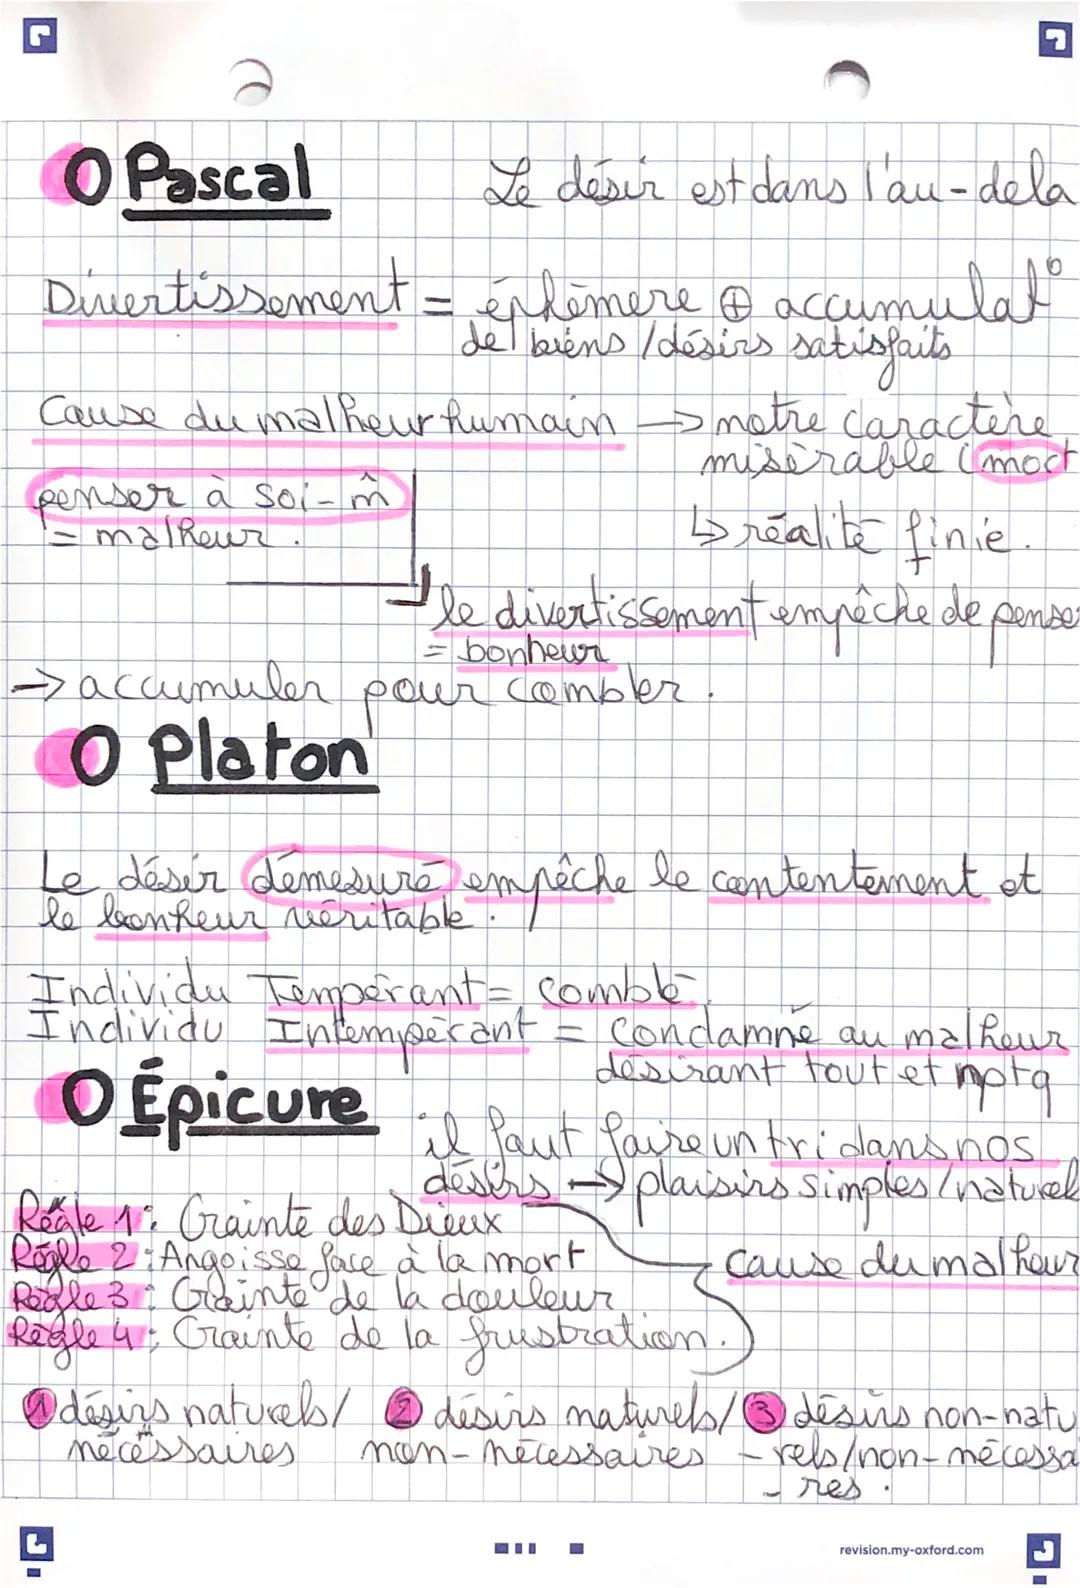 O Pascal
Le désir est dans l'au-dela
Divertissement = éphémere ⊕ accumulat°
de biens / désirs satisfaits
Cause du malheur humain → notre caractère
misérable (mort
penser à soi-m̂
= malheur.
↳ réalité finie.
le divertissement empêche de penser
= bonheur
→ accumuler pour combler.
O Platon
Le désir démesuré empêche le contentement et
le bonheur véritable.
Individu Tempérant = comblé.
Individu Intempérant = condamné au malheur
désirant tout et
O Épicure
il faut faire un tri dans nos
désirs → plaisirs simples / naturels
Règle 1 : Crainte des Dieux
Règle 2 : Angoisse face à la mort
cause du malheur
Règle 3 : Crainte de la douleur
Règle 4 : Crainte de la frustration.
1 désirs naturels/
nécessaires
2 désirs naturels/
non-nécessaires
3 désirs non-natu
-rels/non-nécessai
-res.
revision.my-oxford.com